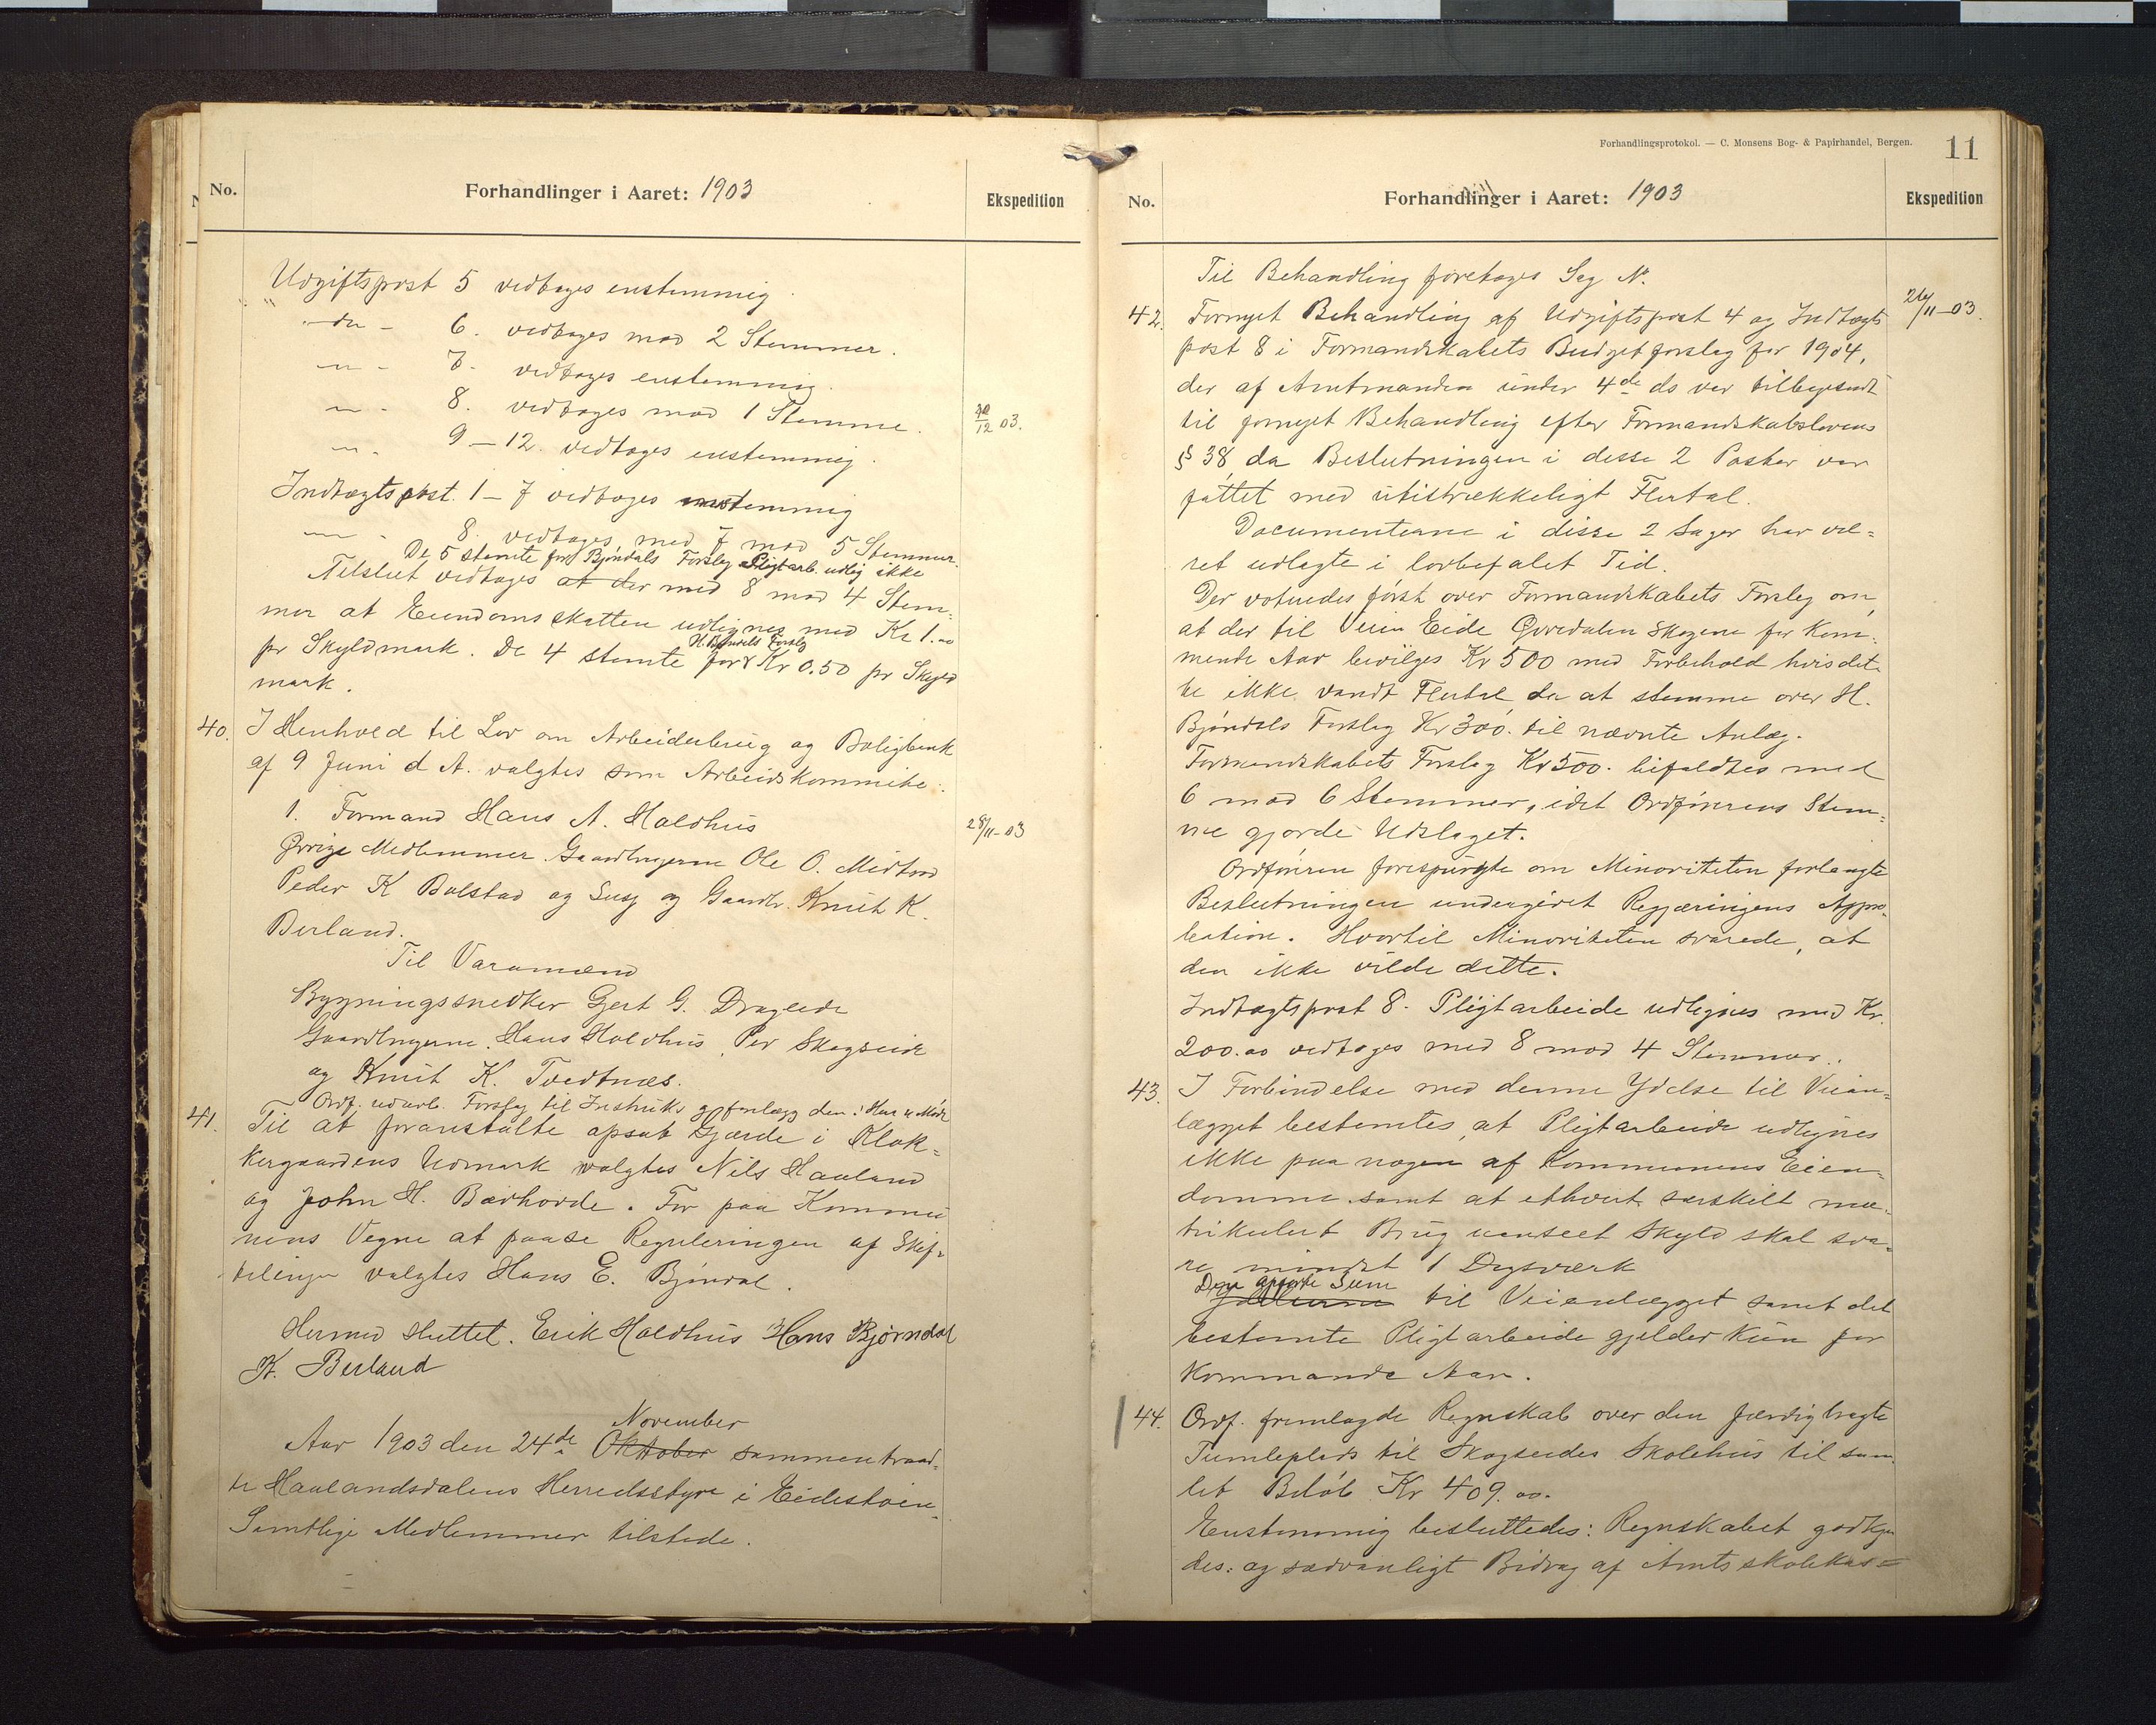 No.
Forhandlinger i Aaret: 1903
Ekspedition
Udgiftspost 5 vedtages enstemmig.
" do - 6. vedtages mod 2 Stemmer.
" - 7. vedtages enstemmig.
" - 8. vedtages mod 1 Stemme.
12 03.
" - 9-12. vedtages enstemmig.
Indtægtspost. 1-7 vedtages enstemmig
" - 8. vedtages med 7 mod 5 Stemmer.
De 5 stemte for Bjøndals Forslag Pligtarb. udlig ikke
Tilslut vedtages at der med 8 mod 4 Stem-
mer at Eiendomsskatten udlignes med Kr 1.00
H. Bjøndals Forslag
pr Skyldmark. De 4 stemte for Kr 0.50 pr Skyld
mark.
40. I Henhold til Lov om Arbeiderbrug og Boligbank
af 9 Juni d A. valgtes som Arbeidskommite:
1. Formand Hans A. Holdhus
28/11-03
Øvrige Medlemmer Gaardbrugerne Ole O. Midtbø
Peder K Bolstad og Gaardb. Knut K.
Berland.
Til Varamænd
Bygningssnedker Gjert G. Drageide
Gaardbrugerne Hans Holdhus, Per Skogseide
og Knut K. Tvedtnæs.
Ordf. udarb. Forslag til Instruks og frelægg den i Her. st. Møde
41. Til at foranstalte opsat Gjærde i Klok-
kergaardens Udmark valgtes Nils Haaland
og John H. Bødhorde. For paa Kommu
nens Vegne at paase Reguleringen af Skif-
telinjer valgtes Hans E. Bjøndal.
Hermed sluttet. Erik Holdhus Hans Bjørndal
K. Berland
November
Aar 1903 den 24de Oktober sammentraad-
te Haalandsdalens Herredsstyre i Eidestøen
Samtlige Medlemmer tilstede.
Forhandlingsprotokol. — C. Monsens Bog- & Papirhandel, Bergen.
11
No.
Forhandlinger i Aaret: 1903
Ekspedition
Til Behandling foretages Sag No.
42. Fornyet Behandling af Udgiftspost 4 og Indtægts
26/11-03.
post 8 i Formandskabets Budgetforslag for 1904,
der af Amtmanden under 4de ds var tilbagesendt
til fornyet Behandling efter Formandskabslovens
§ 38, da Beslutningen i desse 2 Poster var
fattet med utistrækkeligt Flertal.
Documenterne i disse 2 Sager har væ-
ret udlagte i lovbefalet Tid.
Der votuedes først over Formandskabets Forslag om,
at der til Veien Eide Gjøredalen Skogene for kom-
mende Aar bevilges Kr 500 med Forbehold hvis det-
te ikke vandt Flertal, da at stemme over H.
Bjøndals Forslag Kr 300. til nævnte Anlæg.
Formandskabets Forslag Kr 500. bifaldtes med
6 mod 6 Stemmer, idet Ordførerens Stem-
me gjorde Udslaget.
Ordføreren forespurgte om Minoriteten forlangte
Beslutningen undergivet Regjæringens Appro-
bation. Hvortil Minoriteten svarede, at
den ikke vilde dette.
Indtægtspost 8. Pligtarbeide udlignes med Kr.
200.00 vedtages med 8 mod 4 Stemmer.
43. I Forbindelse med denne Ydelse til Veian-
lægget bestemtes, at Pligtarbeide udlignes
ikke paa nogen af Kommunens Eien-
domme samt at ethvert særskilt ma-
trikulert Brug uanseet Skyld skal sva-
re mindst 1 Dagsværk
Den opførte Sum
til Veianlægget samt det
bestemte Pligtarbeide gjelder kun for
kommande Aar.
44. Ordf. fremlagde Regnskab over den færdigbragte
Tumleplads til Skogseides Skolehus til sam
let Beløb Kr 409.00.
Enstemmig besluttedes: Regnskabet godkjen
des: og sædvanligt Bidrag af Amtsskolekas=